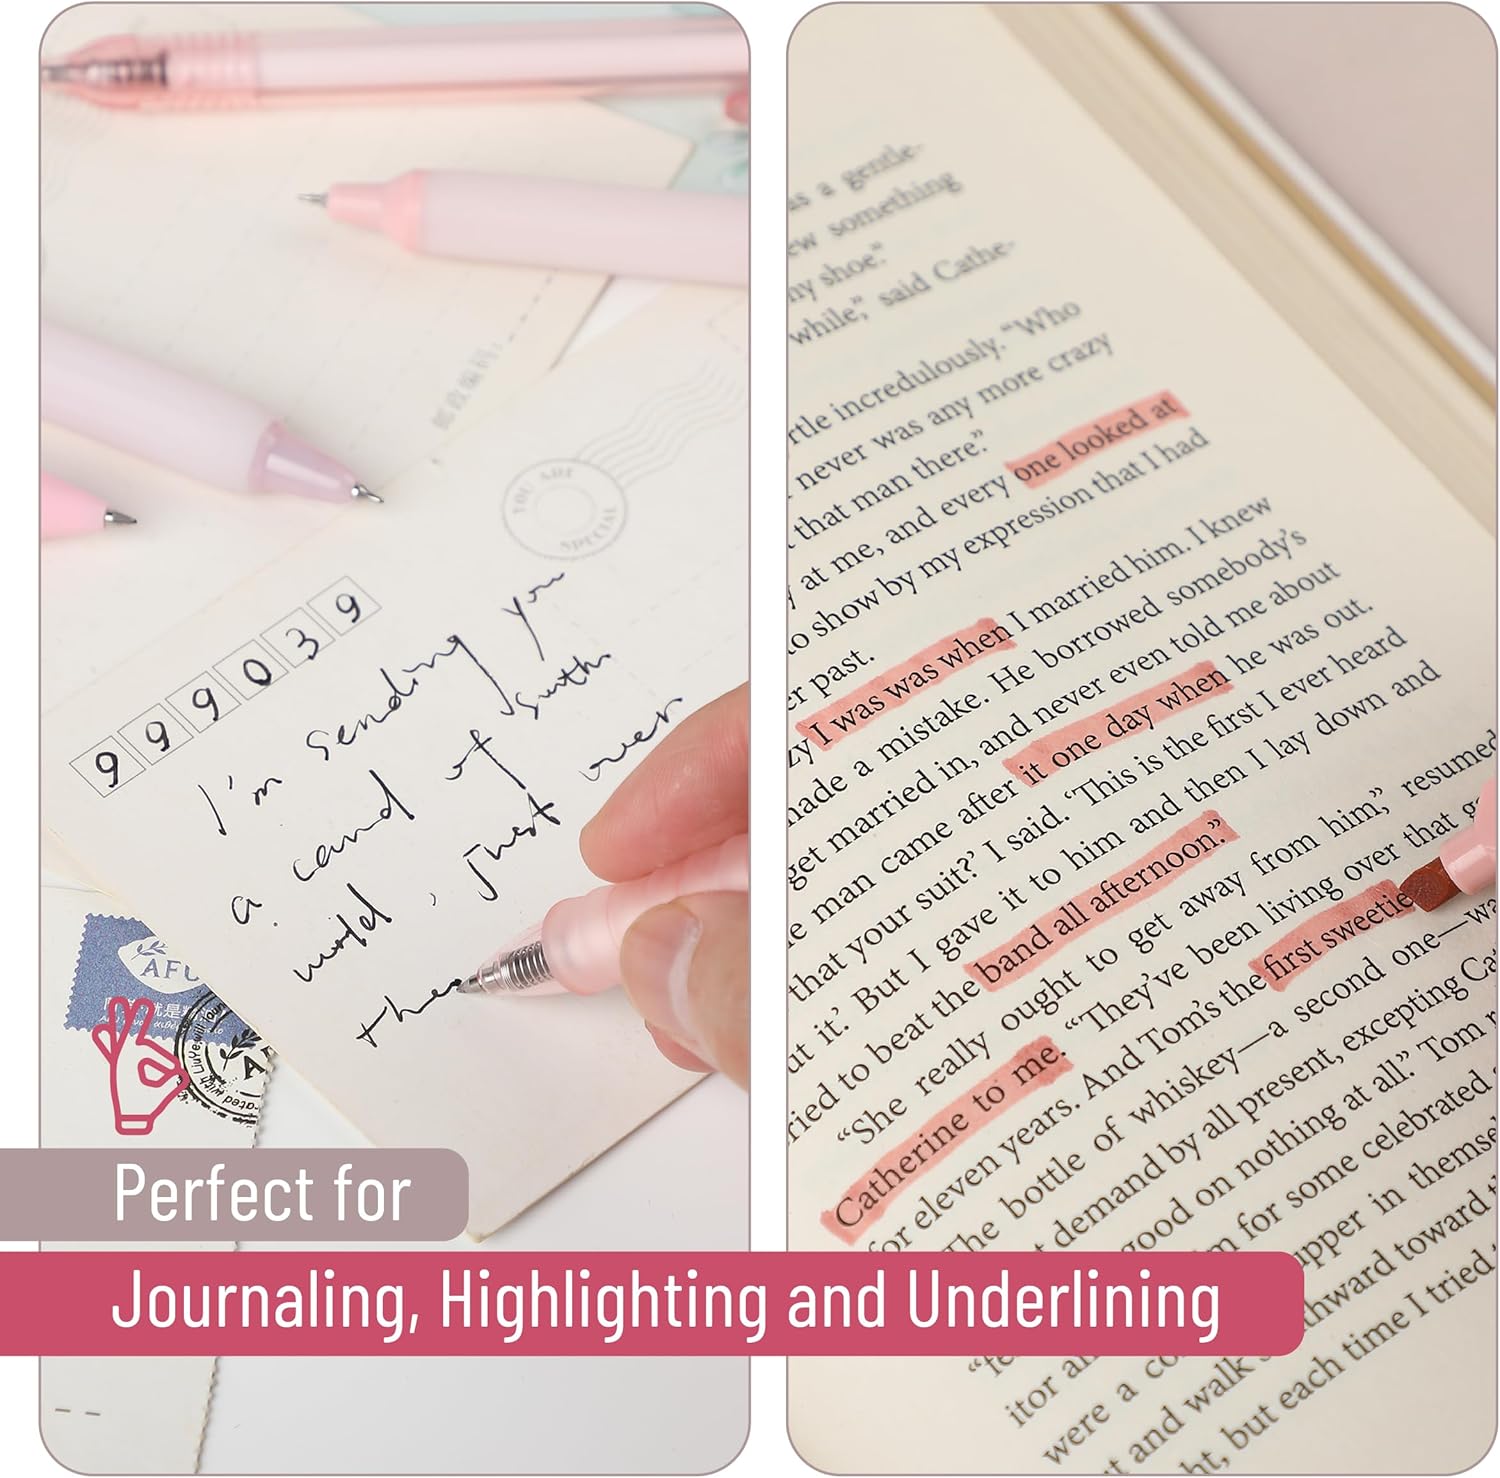 邮政编码:
YOU ARE
SPECIAL
999039
I'm sending you
a card of
world, Just over
AFU
Perfect for
Journaling, Highlighting and Underlining
as a gentle-
ew something
my shoe."
while," said Cathe-
rtle incredulously. "Who
never was any more crazy
that man there."
y at me, and every one looked at
to show by my expression that I had
er past.
zy I was was when I married him. I knew
made a mistake. He borrowed somebody's
get married in, and never even told me about
e man came after it one day when he was out.
that your suit?' I said. 'This is the first I ever heard
ut it.' But I gave it to him and then I lay down and
ried to beat the band all afternoon."
"She really ought to get away from him," resumed
Catherine to me. "They've been living over that ga
for eleven years. And Tom's the first sweetie
The bottle of whiskey—a second one—wa
t demand by all present, excepting Ca
good on nothing at all." Tom r
m for some celebrated
upper in themsel
thward toward t
"fe
itor an
were a co
t and walk
ht, but each time I tried